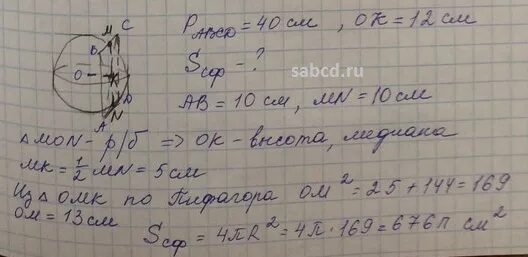 P_ABCD = 40 см, OK = 12 см
S сф - ?
sabcd.ru
AB = 10 см, MN = 10 см
△MON - р/б => OK - высота, медиана
MK = 1/2 MN = 5 см
Из △ OMK по Пифагора OM² = 25 + 144 = 169
OM = 13 см
S сф = 4πR² = 4π · 169 = 676π см²
M
C
B
O
K
A
N
D